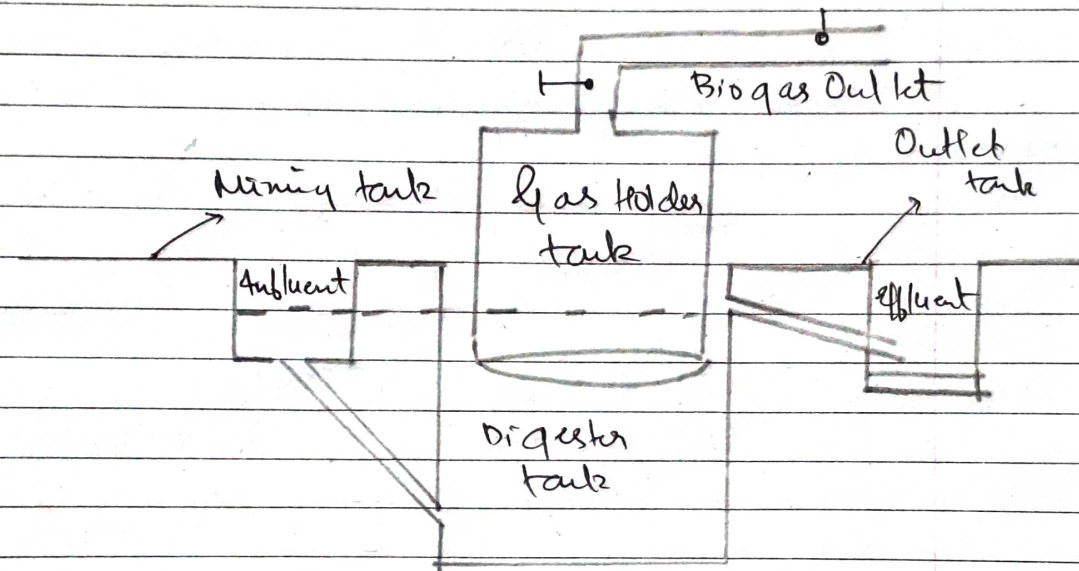 Biogas Outlet
Outlet
tank
Mixing tank
Gas Holder
tank
Influent
Effluent
Digester
tank